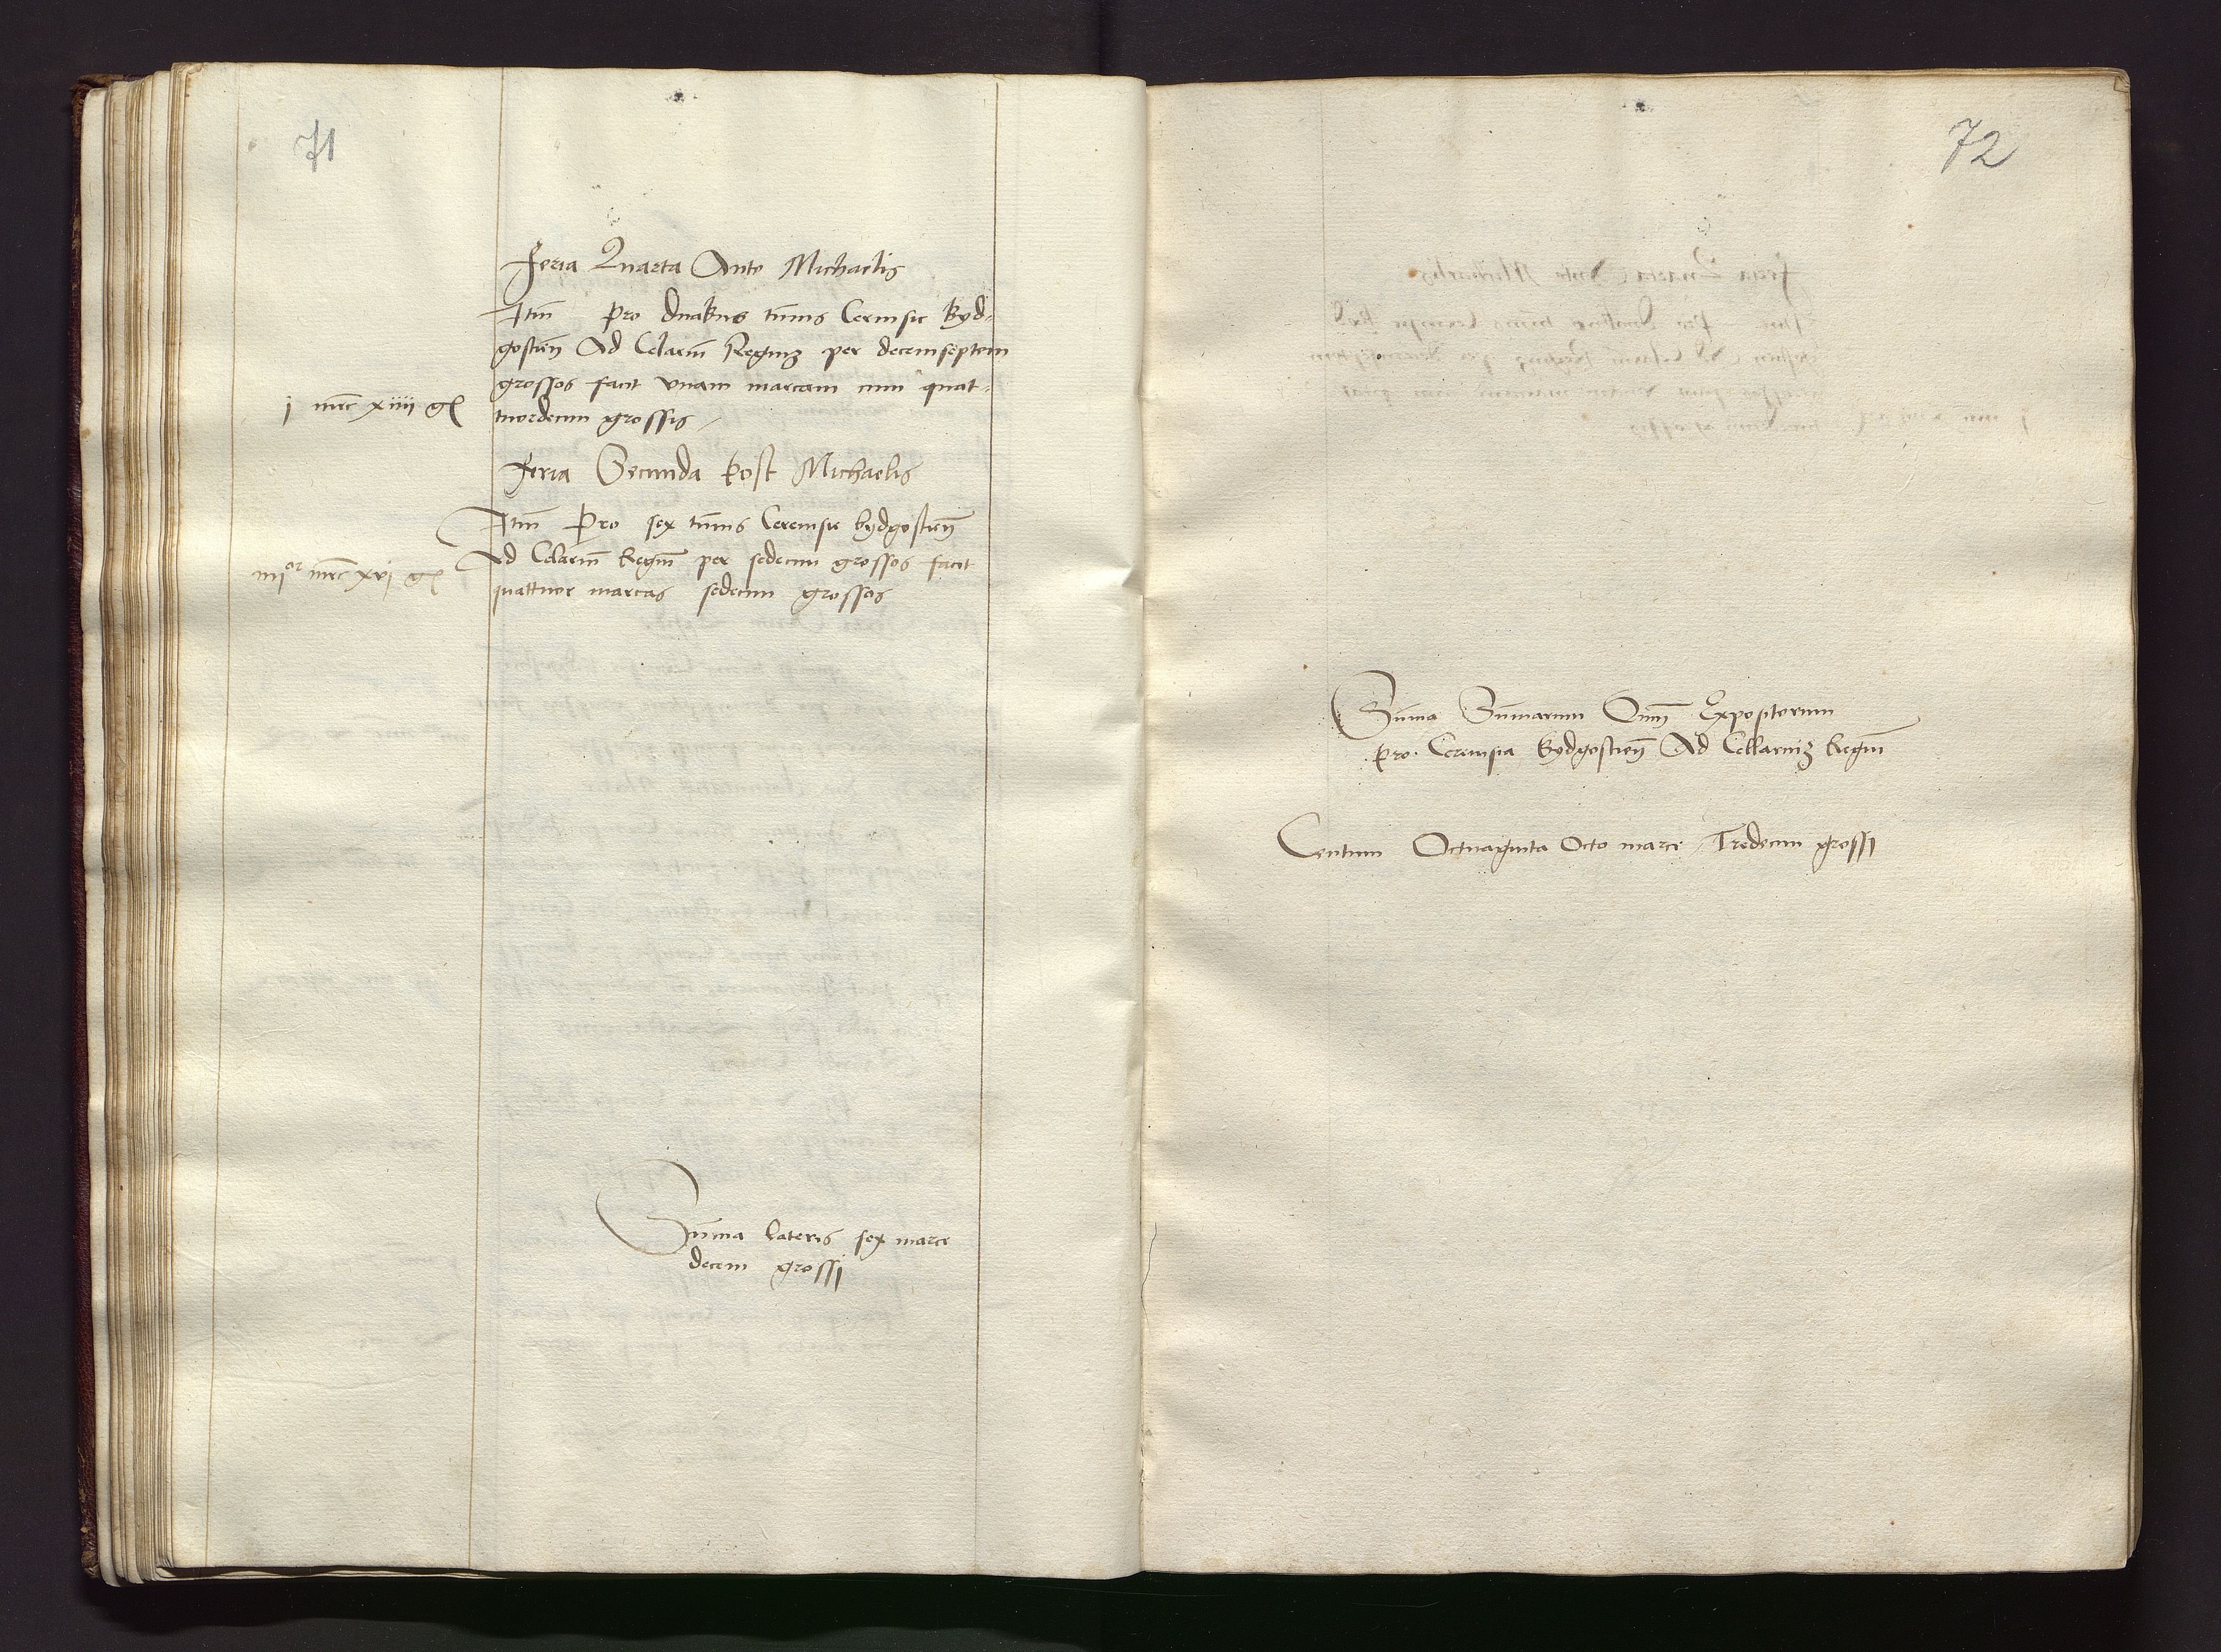 71
Feria Quarta Ante Michaelis
Itm̄ pro duabus tūnis Cerevisie Byd-
gostieñ Ad Celariū Regiuȝ per decemseptem
grossos facit vnam marcam cum quat-
j mrc xiiii gſ tuordecim grossis
Feria Secunda post Michaelis
Itm̄ Pro sex tūnis Cerevisie bydgostieñ
Ad Celariū Regiū per sedecim grossos facit
iiij or mrc xvj gſ quattuor marcas sedecim grossos
Sūma lateris sex marce
decem grossi
72
Sūma Sūmarum Om̄ Expositorum
pro Cerevisia Bydgostieñ Ad Cellariuȝ Regiū
Centum Octuaginta Octo marce Tredecim grossi